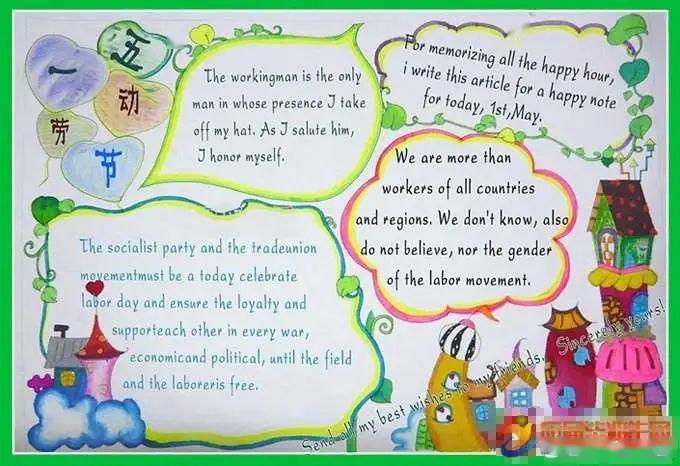 五一
劳动
节
The workingman is the only
man in whose presence I take
off my hat. As I salute him,
I honor myself.
For memorizing all the happy hour,
i write this article for a happy note
for today, 1st,May.
We are more than
workers of all countries
and regions. We don't know, also
do not believe, nor the gender
of the labor movement.
The socialist party and the tradeunion
movementmust be a today celebrate
labor day and ensure the loyalty and
supporteach other in every war,
economicand political, until the field
and the laboreris free.
Send all my best wishes to my friends, Sincerely yours!